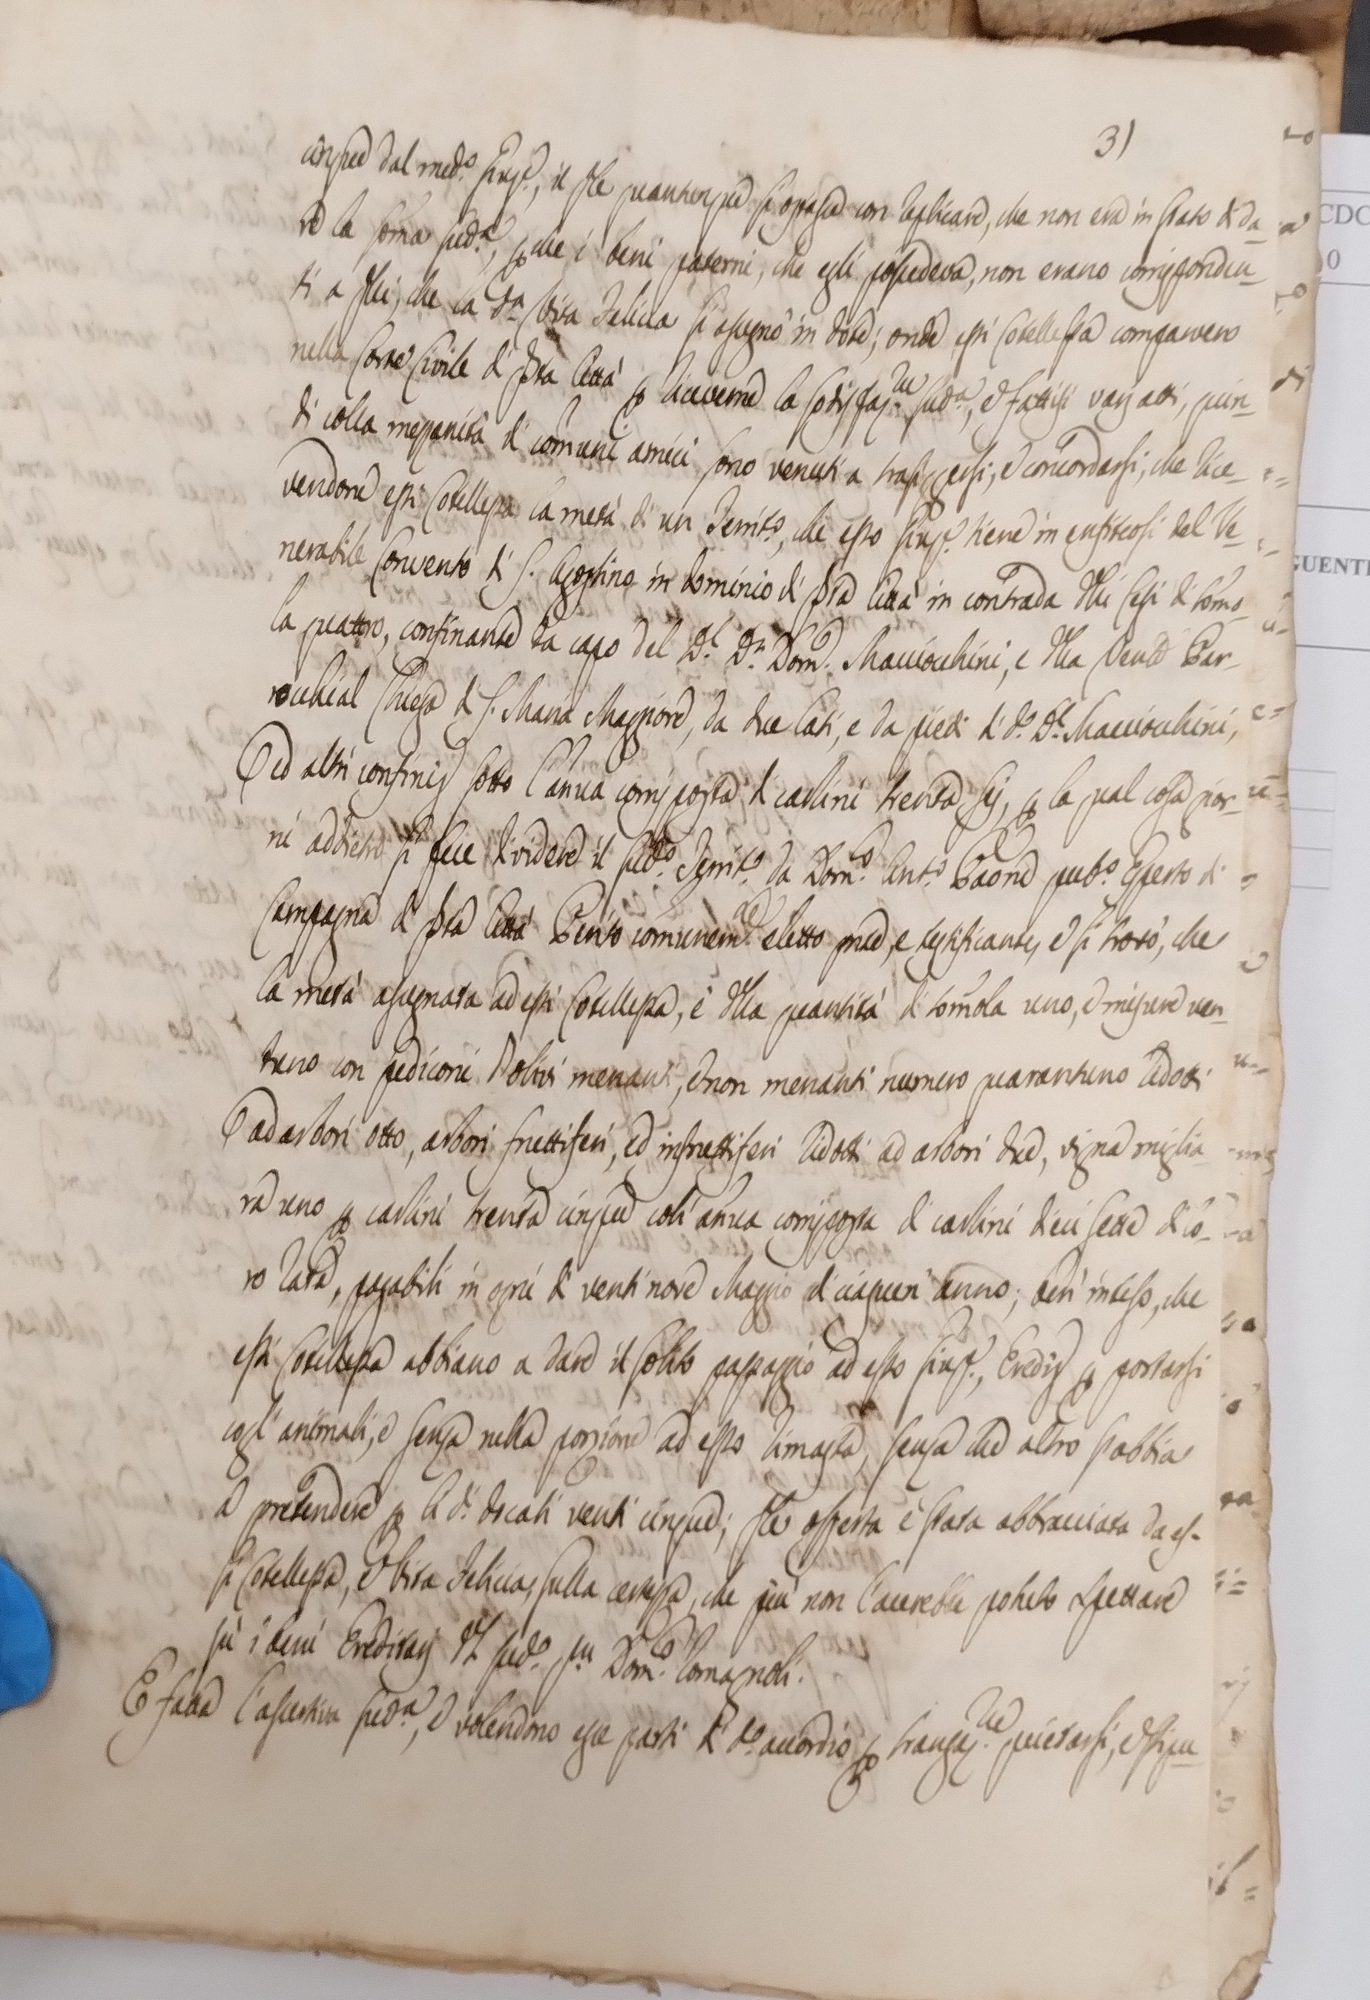 31
cinque dal med.o Giuse.e, il quale quantunque si opponesse con replicare, che non era in stato di da-
re la somma sud.a, perche i beni paterni, che egli possedeva, non erano corrispondenti
ti a quei, che la d.a Vita Felicia si assegnò in dote; onde essi Cotellessa comparvero
nella Corte Civile di q.sta Città per riceverne la sodisfaz.ne sud.a, e fattisi varj atti, quin-
di colla mezzanità di comuni amici sono venuti a transigersi, e concordarsi, che rice-
vendone essi Cotellessa la metà di un Territ.o, che esso Gius.e tiene in enfiteosi del Ve-
nerabile Convento di S. Agostino in dominio di q.sta Città in contrada delli Cesi di tomo-
la quattro, confinante da capo del D.r D.n Dom.o Maciocchini, e della Ven.le Par-
rocchial Chiesa di S. Maria Maggiore, da due lati, e da piedi di d.o D.r Maciocchini,
ed altri confini, sotto l'annua corrisposta di carlini trenta sei, per la qual cosa gior-
ni addietro si fece dividere il sud.o Territ.o da Dom.o Ant.o Paone pub.o Esperto di
Campagna di q.sta Città Perito comunem.te eletto, e testificante, e si trovò, che
la metà assegnata ad essi Cotellessa, è della quantità di tomola uno, e misure ven-
tuno con pedicini d'olivi menanti, e non menanti numero quarantuno ridotti
ad arbori otto, arbori fruttiferi, ed infruttiferi ridotti ad arbori due, vigna miglia-
ra uno per carlini trenta cinque coll'annua corrisposta di carlini dieci sette di lo-
ro rata, pagabili in ogni dì venti nove Maggio di ciascun anno; ben inteso, che
essi Cotellessa abbiano a dare il solito passaggio ad esso Gius.e, Eredi per portarsi
cogl'animali, e senza nella porzione ad esso rimasta, senza che altro s'abbia
a pretendere per li d.i docati venti cinque; quale offerta è stata abbracciata da es-
si Cotellessa, e Vita Felicia, sulla certezza, che più non l'averebbe potuto spettare
sù i beni Ereditarj del sud.o qm Dom.o Comagnoli.
E fatta l'assertiva sud.a, e volendono esse parti di d.o accordio per transaz.ne quietarsi, e stipu-